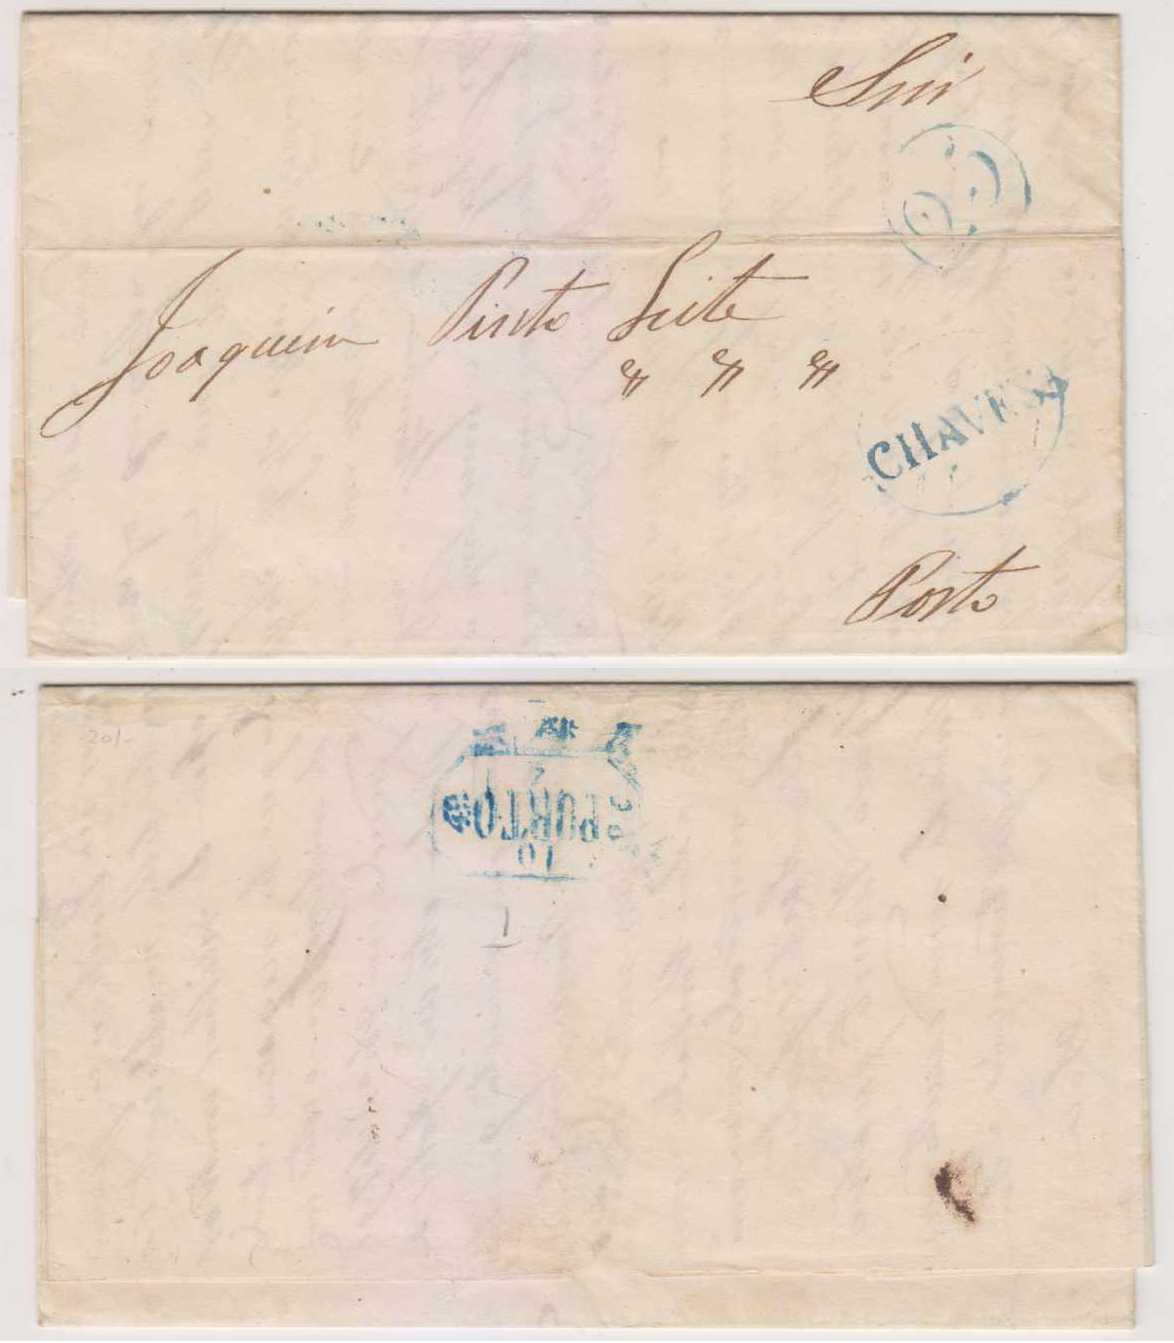 Snr
Joaquim Pinto Leite
CHAVES
Porto
20/-
PORTO
10